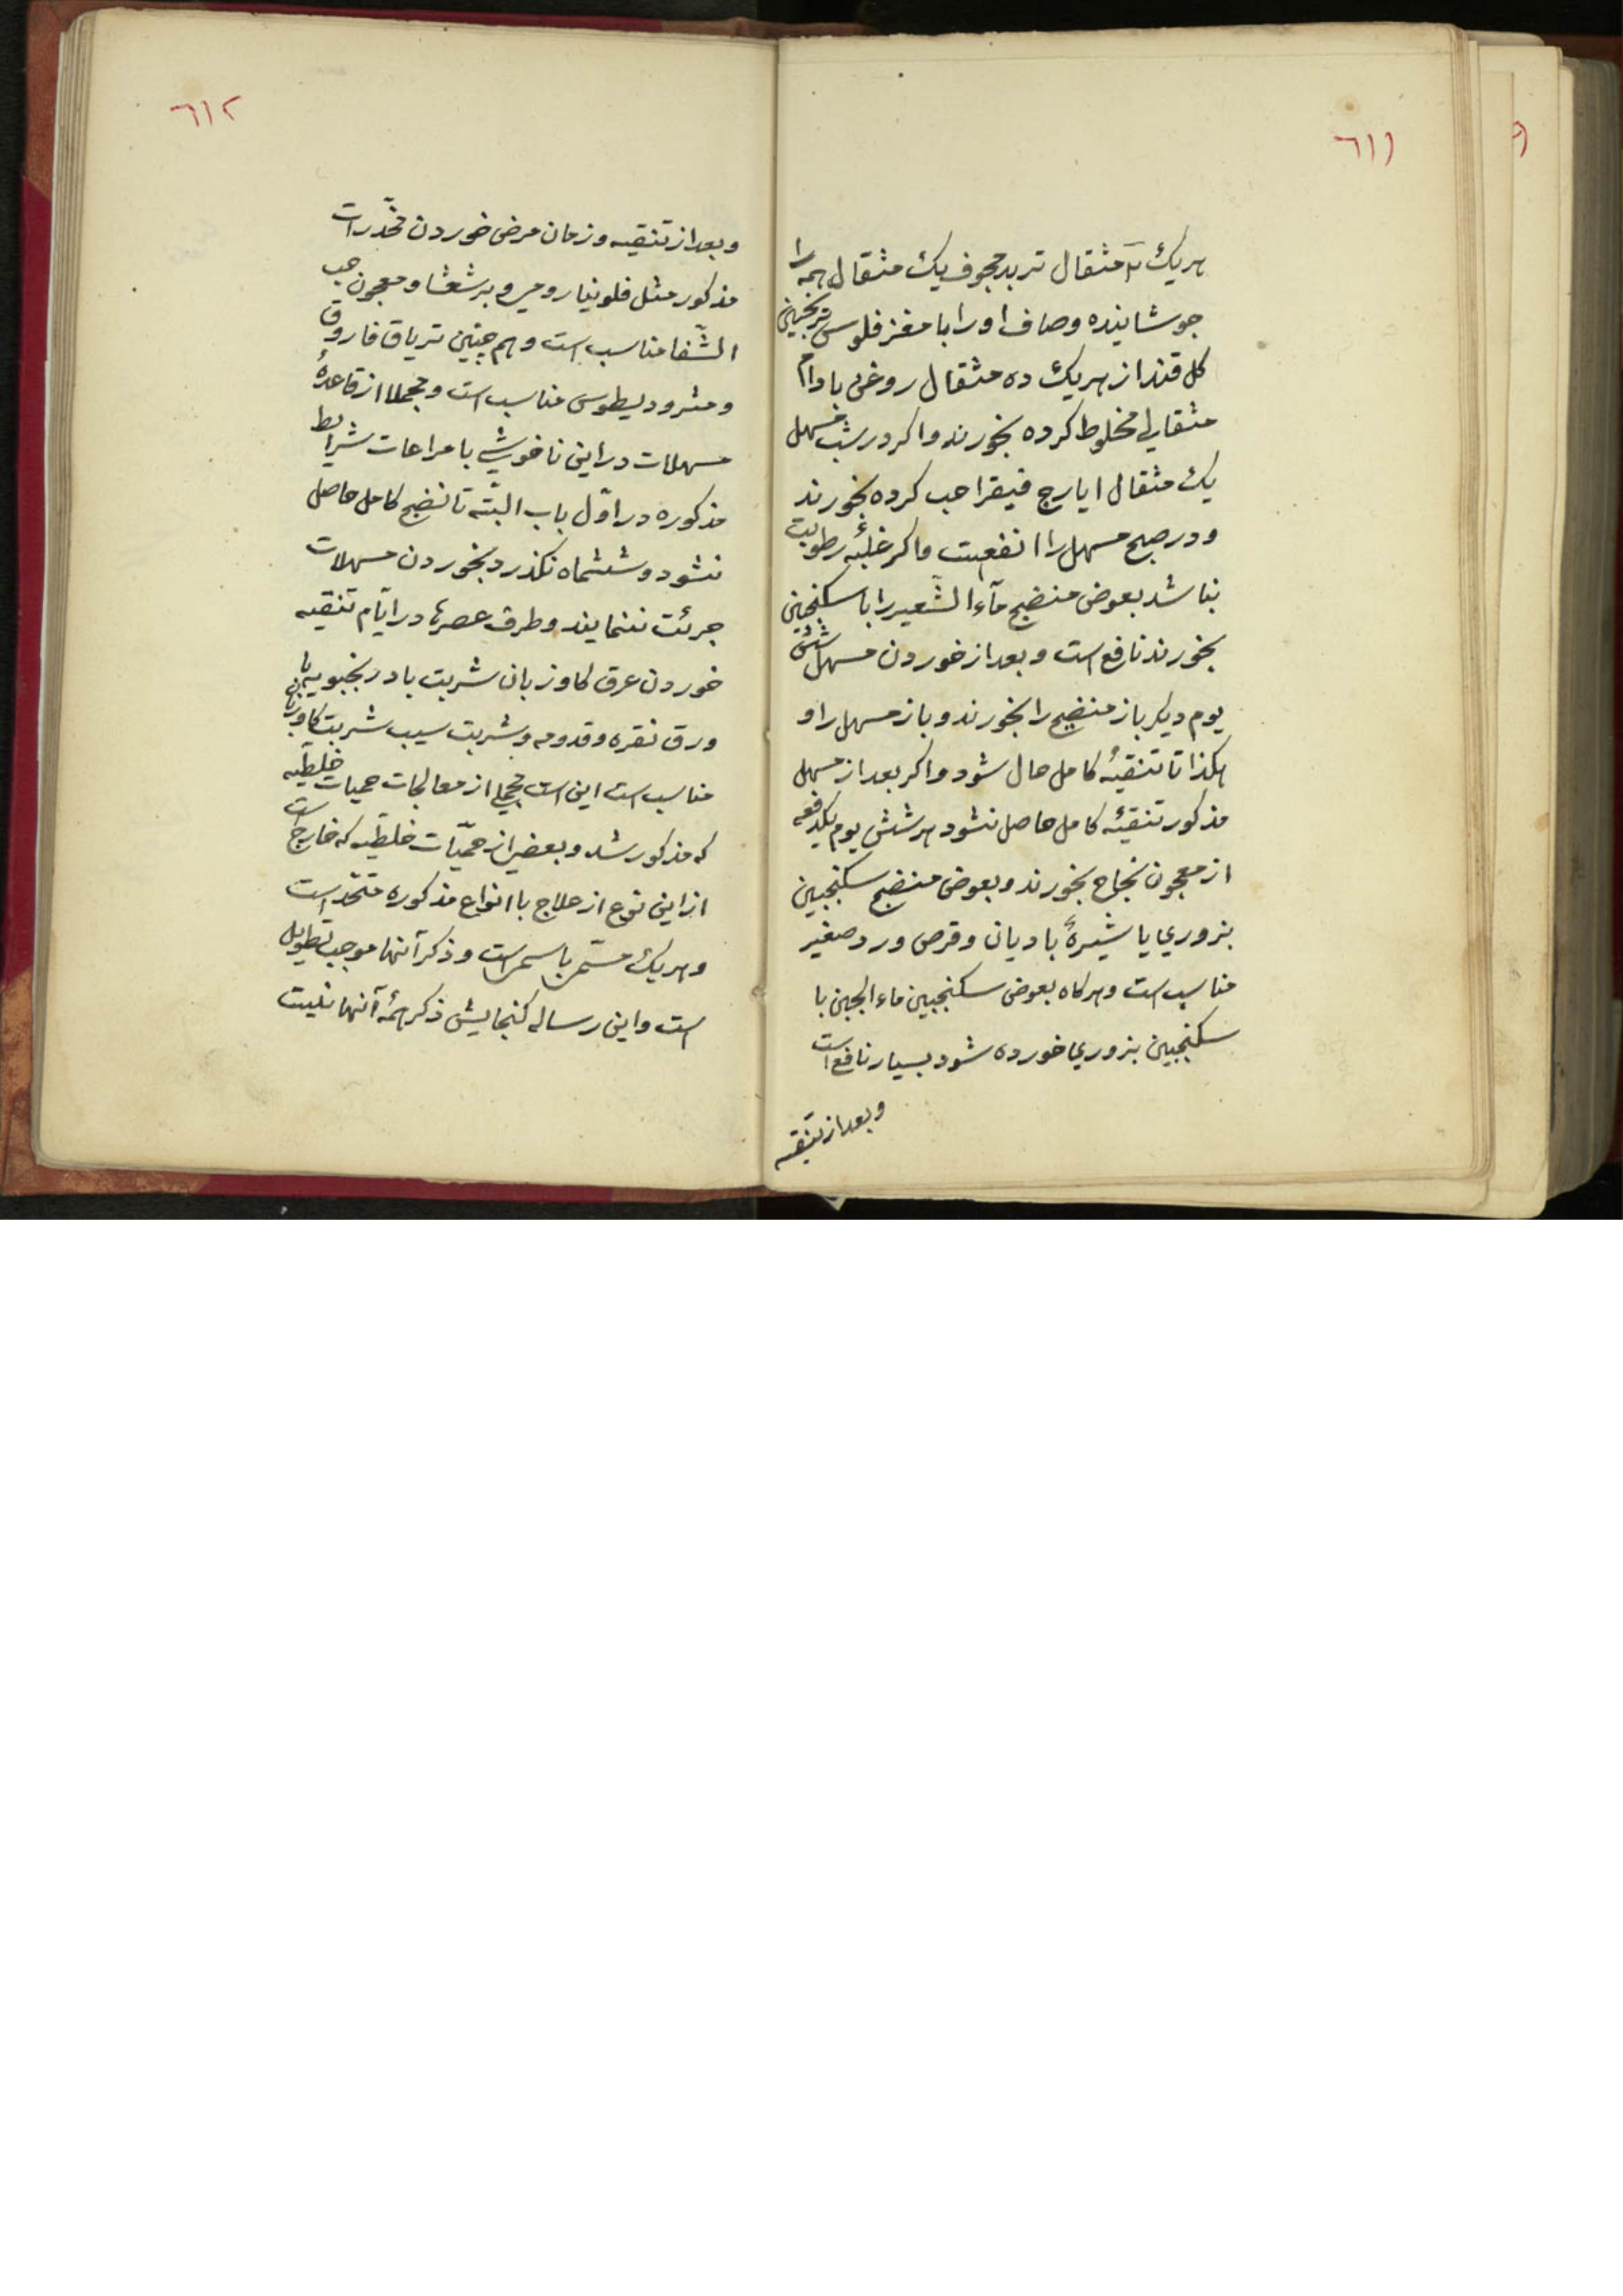 ٦١١
هریك مثقال تربد مجوف یك مثقال همه را
جوشانیده وصاف او را با مغز فلوس ترنجبین
کل قند از هریك ده مثقال روغن بادام
مثقالي مخلوط کرده بخورند واکر در شب مسهل
یك مثقال ایارج فیقرا حب کرده بخورند
ودر صبح مسهل را انفعست واکر غلبهٔ رطوبت
نباشد بعوض منضج مآء الشّعیر را با سکنجبین
بخورند نافع است وبعد از خوردن مسهل شش
یوم دیکر باز منضج را بخورند وباز مسهل را و
هکذا تا تنقیهٔ کامل حال شود واکر بعد از مسهل
مذکور تنقیهٔ کامل حاصل نشود هر شش یوم یکدفعه
از معجون نجاح بخورند وبعوض منضج سکنجبین
بزوري یا شیرهٔ بادیان وقرص ورد صغیر
مناسب است وهرکاه بعوض سکنجبین ماء الجبن با
سکنجبین بزوري خورده شود بسیار نافع است
وبعد از تنقیه
٦١٢
وبعد از تنقیه وزمان مرض خوردن مخدّرات
مذکور مثل فلونیا رومي وبرشعثا ومعجون حب
الشّفا مناسب است وهم چنین تریاق فاروق
ومثرودیطوس مناسب است ومجملا از قاعدهٔ
مسهلات در این ناخوشي با مراعات شرایط
مذکوره در اوّل باب البتّه تا نضج کامل حاصل
نشود وششماه نکذرد بخوردن مسهلات
جرئت ننمایند وطرف عصرها در ایّام تنقیه
خوردن عرق کاوزبان شربت بادرنجبویه با
ورق نقره وقدومه وشربت سیب شربت کاوزبان
مناسب است این است مجملي از معالجات حمیات خلطیّه
که مذکور شد وبعضي از حمیّات خلطیّه که خارج است
از این نوع از علاج با انواع مذکوره متّحد است
وهریك مسمّی باسمی است وذکر آنها موجب تطویل
است واین رساله کنجایش ذکر همهٔ آنها نیست